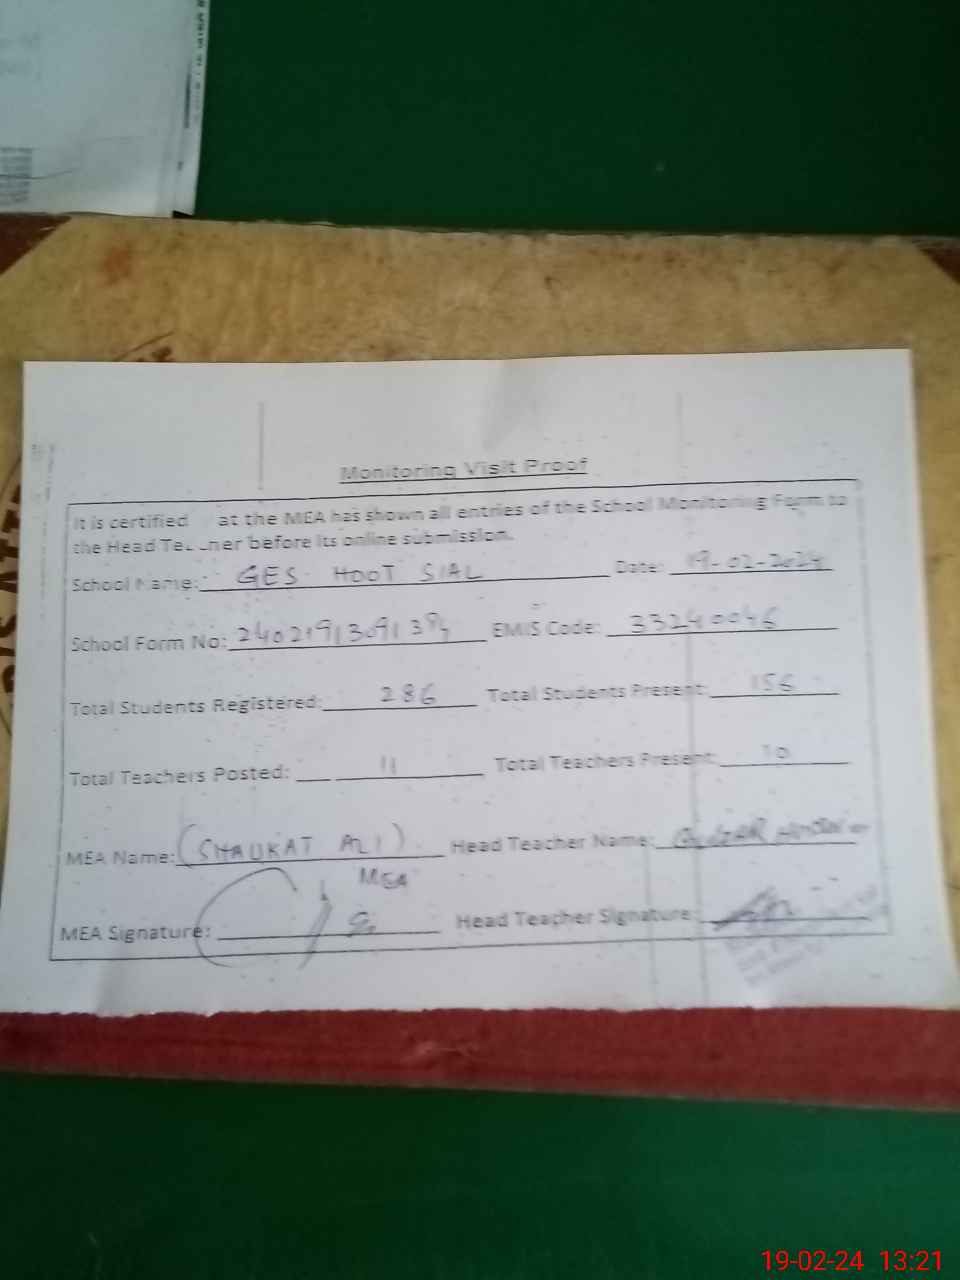 Monitoring Visit Proof
It is certified at the MEA has shown all entries of the School Monitoring Form to
the Head before its online submission.
School Name: GES HOOT SIAL Date: 19-02-2024
School Form No: EMIS Code: 33240046
Total Students Registered: 286 Total Students Present: 156
Total Teachers Posted: 11 Total Teachers Present: 10
MEA Name: (SHAUKAT ALI) Head Teacher Name:
MEA
MEA Signature: Head Teacher Signature:
19-02-24 13:21